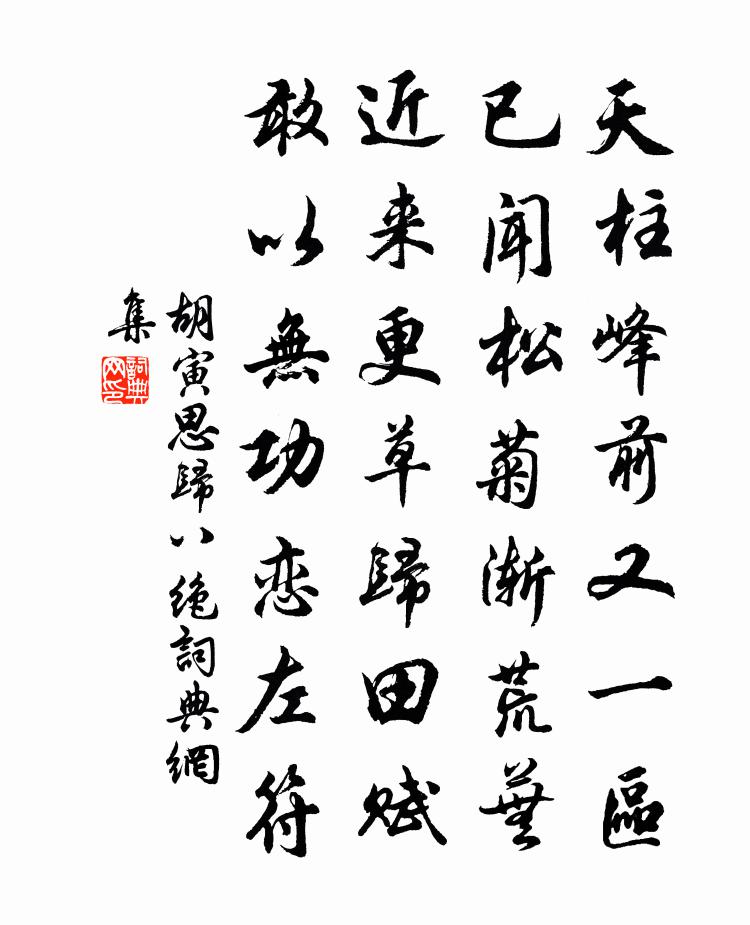 天柱峰前又一區
已闻松菊漸荒蕪
近来更草歸田赋
敢以無功恋左符
胡寅思歸八绝詞典網
集
詞典
网印